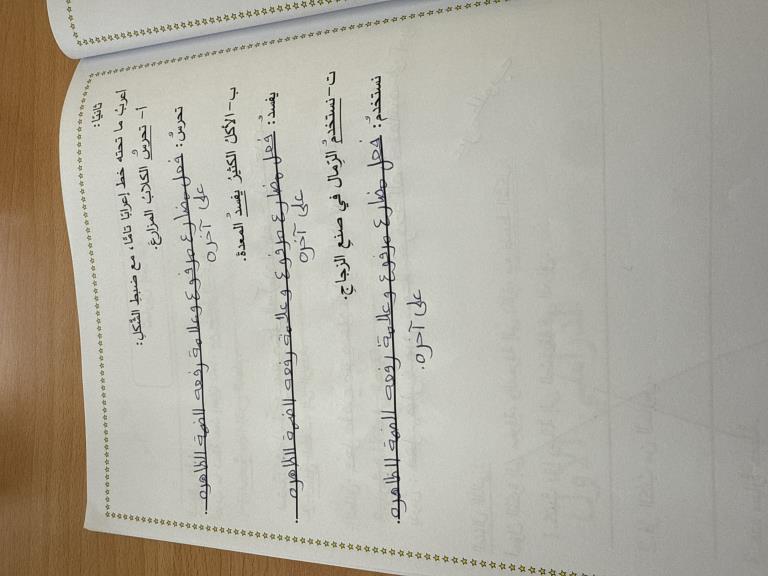 ثانيًا:
أعربُ ما تحته خط إعرابًا تامًّا، مع ضبطِ الشكل:
أ- تحرسُ الكلابُ المزارعَ.
تحرسُ: فعل مضارع مرفوع وعلامة رفعه الضمة الظاهره
على آخره.
ب- الأكلُ الكثيرُ يفسدُ المعدةَ.
يفسدُ: فعل مضارع مرفوع وعلامة رفعه الضمة الظاهره
على آخره.
ت- نستخدمُ الرِّمالَ في صنعِ الزجاجِ.
نستخدمُ: فعل مضارع مرفوع وعلامة رفعه الضمة الظاهره
على آخره.